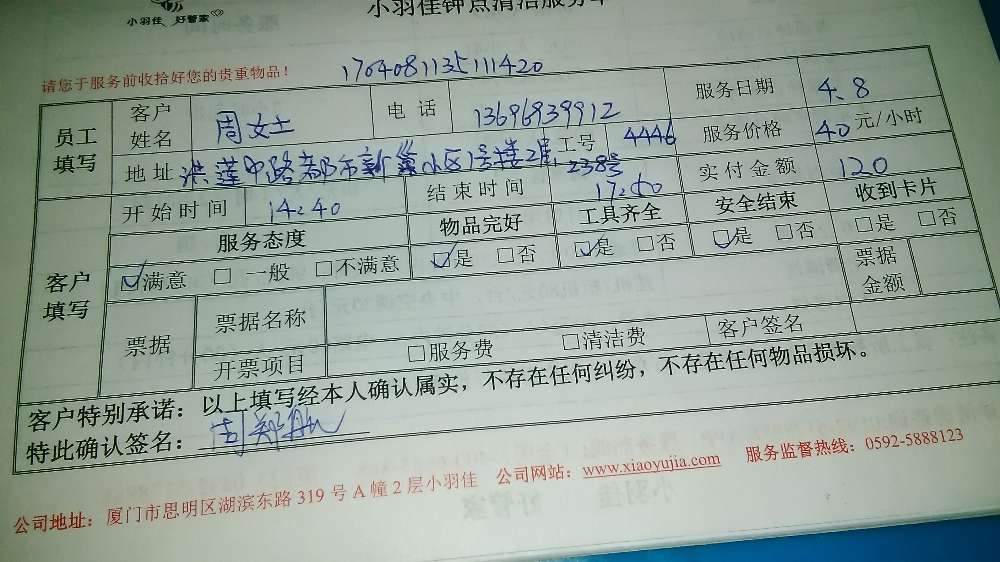 小羽佳 好管家
小羽佳钟点清洁服务单
请您于服务前收拾好您的贵重物品！ 1704081135111420
员工填写 客户姓名 周女士 电话 13696939912 服务日期 4.8
地址 洪莲中路都市新巢小区1号楼2层238号 工号 4446 服务价格 40元/小时
客户填写 开始时间 14:40 结束时间 17:50 实付金额 120
服务态度 物品完好 工具齐全 安全结束 收到卡片
☑满意 □一般 □不满意 ☑是 □否 ☑是 □否 ☑是 □否 □是 □否
票据 票据名称 票据金额
开票项目 □服务费 □清洁费 客户签名
客户特别承诺：以上填写经本人确认属实，不存在任何纠纷，不存在任何物品损坏。
特此确认签名：周郑
公司地址：厦门市思明区湖滨东路319号A幢2层小羽佳 公司网站：www.xiaoyujia.com 服务监督热线：0592-5888123